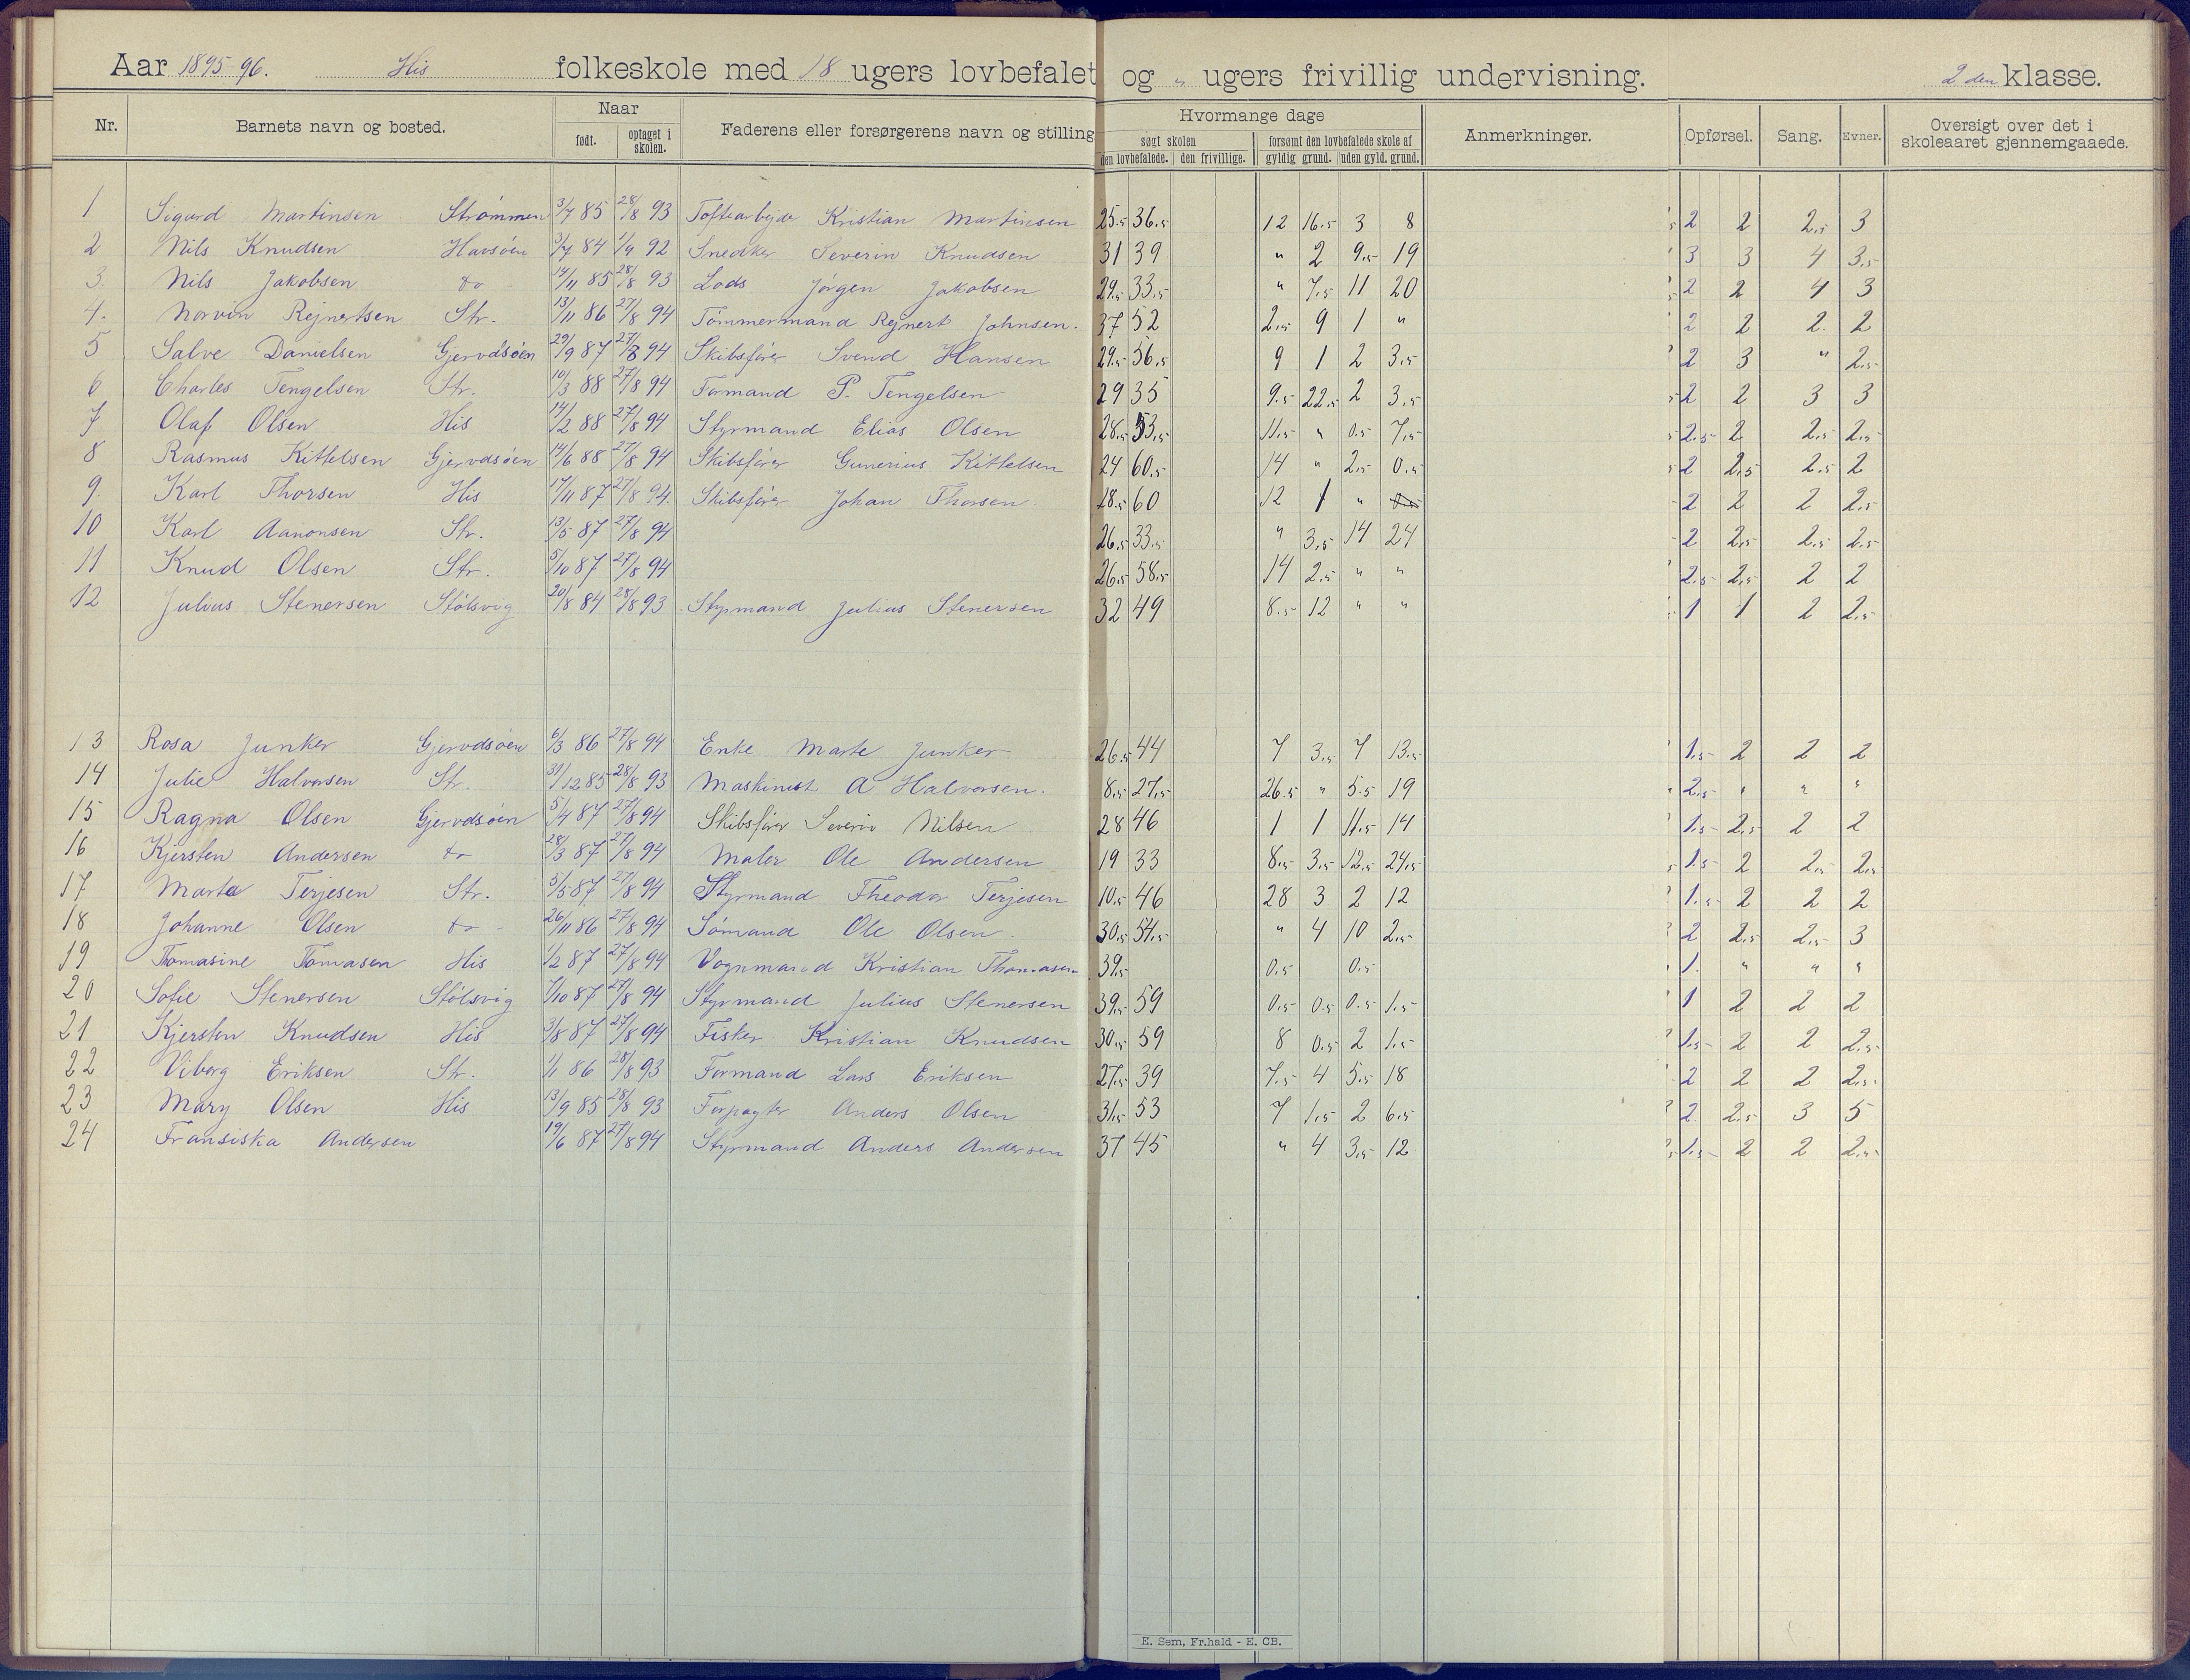 Aar 1895-96. His folkeskole med 18 ugers lovbefalet og " ugers frivillig undervisning. 2den klasse.
Nr. Barnets navn og bosted. Naar født. optaget i skolen. Faderens eller forsørgerens navn og stilling Hvormange dage søgt skolen den lovbefalede. den frivillige. forsømt den lovbefalede skole af gyldig grund. uden gyld. grund. Anmerkninger. Opførsel. Sang. Evner. Oversigt over det i skoleaaret gjennemgaaede.
1 Sigurd Martinsen Strømmen 3/7 85 28/8 93 Toftearbejder Kristian Martinsen 25.5 36.5 12 16.5 3 8 2 2 2.5 3
2 Nils Knudsen Havsøen 3/7 84 1/9 92 Snedker Severin Knudsen 31 39 " 2 9.5 19 3 3 4 3.5
3. Nils Jakobsen do 14/11 85 28/8 93 Lods Jørgen Jakobsen 29.5 33.5 " 7.5 11 20 2 2 4 3
4. Norvin Rejnertsen Str. 13/11 86 27/8 94 Tömmermand Rejnert Johnsen. 37 52 2.5 9 1 " 2 2 2. 2
5 Salve Danielsen Gjervdsöen 29/9 87 27/8 94 Skibsfører Svend Hansen 29.5 56.5 9 1 2 3.5 2 3 " 2.5
6 Charles Tengelsen Str. 10/3 88 27/8 94 Formand P. Tengelsen 29 35 9.5 22.5 2 3.5 2 2 3 3
7 Olaf Olsen His 14/2 88 27/8 94 Styrmand Elias Olsen 28.5 53.5 11.5 " 0.5 7.5 2.5 2 2.5 2.5
8 Rasmus Kittelsen Gjervdsöen 14/6 88 27/8 94 Skibsfører Gunerius Kittelsen 24 60.5 14 " 2.5 0.5 2 2.5 2.5 2
9. Karl Thorsen His 17/11 87 27/8 94. Skibsfører Johan Thorsen 28.5 60 12 1 " 2 2 2 2.5
10 Karl Aanonsen Str. 13/5 87 27/8 94 26.5 33.5 " 3.5 14 24 2 2.5 2.5 2.5
11 Knud Olsen Str. 5/10 87 27/8 94 26.5 58.5 14 2.5 " " 2.5 2.5 2 2
12 Julius Stenersen Stölsvig 20/8 84 28/8 93 Styrmand Julius Stenersen 32 49 8.5 12 " " 1 1 2 2.5
13 Rosa Junker Gjervdsöen 6/3 86 27/8 94 Enke Marte Junker 26.5 44 7 3.5 7 13.5 1.5 2 2 2
14 Julie Halvorsen Str. 31/12 85 28/8 93 Maskinist A Halvorsen. 8.5 27.5 26.5 " 5.5 19 2.5 " " "
15 Ragna Olsen Gjervdsöen 5/4 87 27/8 94 Skibsfører Severin Nilsen 28 46 1 1 11.5 14 1.5 2.5 2 2
16 Kjersten Andersen do 28/3 87 27/8 94 Maler Ole Andersen 19 33 8.5 3.5 12.5 24.5 1.5 2 2.5 2.5
17 Marta Terjesen Str. 5/5 87 27/8 94 Styrmand Theodor Terjesen 10.5 46 28 3 2 12 1.5 2 2 2
18 Johanne Olsen do 26/11 86 27/8 94 Sömand Ole Olsen 30.5 54.5 " 4 10 2.5 2 2.5 2.5 3
19 Tomasine Tomasen His 1/2 87 27/8 94 Vognmand Kristian Thomasen 39.5 0.5 0.5 1. " " "
20 Sofie Stenersen Stölsvig 7/10 87 27/8 94 Styrmand Julius Stenersen 39.5 59 0.5 0.5 0.5 1.5 1 2 2 2
21 Kjersten Knudsen His 3/8 87 27/8 94 Fisker Kristian Knudsen 30.5 59 8 0.5 2 1.5 1.5 2 2 2.5
22 Viborg Eriksen Str. 1/1 86 28/8 93 Formand Lars Eriksen 27.5 39 7.5 4 5.5 18 2 2 2 2.5
23 Mary Olsen His 13/9 85 28/8 93 Forpagter Anders Olsen 31.5 53 7 1.5 2 6.5 2. 2.5 3 5
24 Fransiska Andersen 19/6 87 27/8 94 Styrmand Anders Andersen 37 45 " 4 3.5 12 1.5 2 2 2.5
E. Sem, Fr.hald - E. CB.